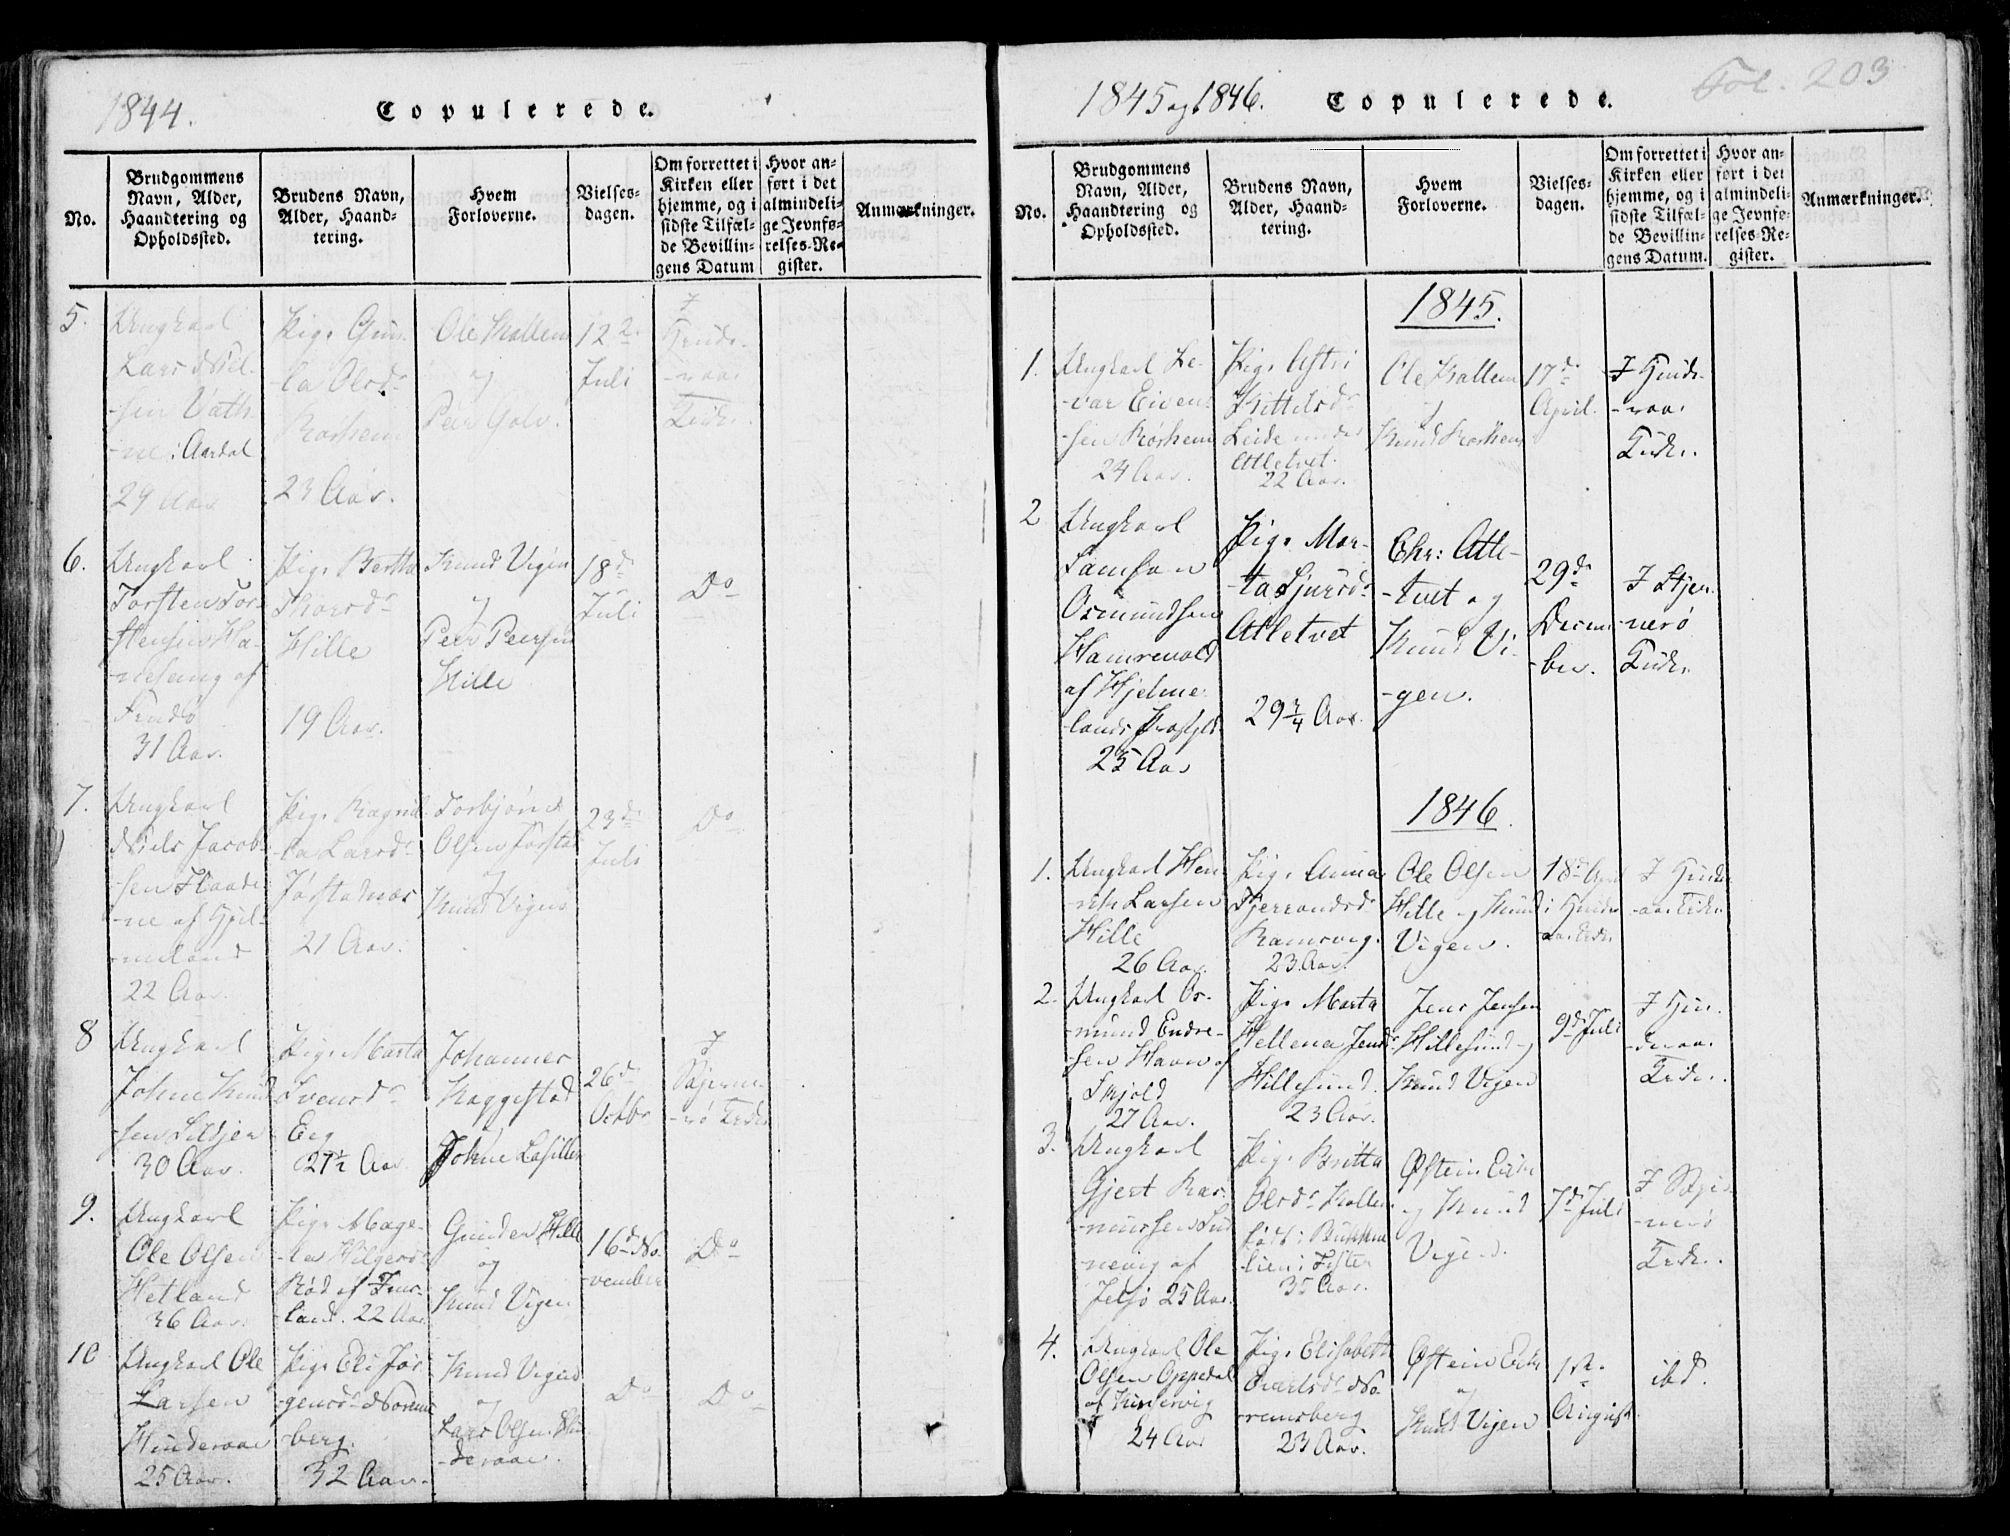 1844.
Copulerede.
No.
Brudgommens Navn, Alder, Haandtering og Opholdssted.
Brudens Navn, Alder, Haandtering.
Hvem Forloverne.
Vielsesdagen.
Om forrettet i Kirken eller hjemme, og i sidste Tilfælde Bevillingens Datum
Hvor anført i det almindelige Jevnførelses-Register.
Anmærkninger.
5.
Ungkarl
Lars Niel-
-sen Vath-
-ne i Aardal
29 Aar
Pige Gun-
-la Olsdr
Rørhem
23 Aar.
Ole Kallem
og
Peer Golv.
12te
Juli
I
Hinde-
-raae
Kirke.
6.
Ungkarl
Torsten Tor-
-stensen Ha-
af
Findø
31 Aar.
Pige Bertha
Thorsdr
Hille
19 Aar.
Knud Vigen
og
Peer Peersen
Hille
18de
Juli
Do
7.
Ungkarl
Niels Jacob-
-sen Flaade-
-ne af Hjel-
-meland
22 Aar.
Pige Ragnil-
-la Larsdr
Jøstadnæs
21 Aar.
Torbjørn
Olsen Jøstad
og
Knud Vigen
23de
Juli
Do
8
Ungkarl
Johne Knud-
-sen Sildjen
30 Aar.
Pige Marta
Svensdr
Eeg
27½ Aar
Johannes
Naggestad
Johne
26de
Octbr
I
Skjerne-
-rø Kirke
9.
Ungkarl
Ole Olsen
Hetland
36 Aar.
Pige Mage-
-le Hilgersdr
Rød af Imsland. 22 Aar
Gunder Hille
og
Knud Vigen
16de No-
-vember
Do
10
Ungkarl Ole
Larsen
Hinderaae
25 Aar.
Pige Eli Jør-
-gensdr Norem-
-berg.
32 Aar.
Knud Vigen
og
Lars Olsen Hin-
-deraae.
Do
Do
Fol. 203
1845 og 1846.
Copulerede.
No.
Brudgommens Navn, Alder, Haandtering og Opholdssted.
Brudens Navn, Alder, Haandtering.
Hvem Forloverne.
Vielsesdagen.
Om forrettet i Kirken eller hjemme, og i sidste Tilfælde Bevillingens Datum.
Hvor anført i det almindelige Jevnførelses-Register.
Anmærkninger.
1845.
1.
Ungkarl Le-
-var Eiven-
-sen Rørhem
24 Aar.
Pige Astri
Kittelsdr
Leide under
Atletvet.
22 Aar.
Ole Kallem
og
Knud Rørhem
17de
April.
I Hinde-
-raae
Kirke.
2
Ungkarl
Samson
Osmundsen
Hamrevold
af Hjelme-
-lands Præstgld.
25 Aar
Pige Mar-
-ta Sjursdr
Atletvet
29¾ Aar.
Chr: Atle-
-tvet og
Knud Vi-
-gen.
29de
Decem-
-ber.
I Skjer-
-nerø
Kirke
1846.
1.
Ungkarl Hen-
-rik Larsen
Hille
26 Aar.
Pige Anna
Tjerrandsdr
Ramsvig.
23 Aar.
Ole Olsen
Hille og Knud
Vigen.
18de April
i Hinder-
-aae Kirke
I Hinder-
-aae Kirke
2.
Ungkarl Os-
-mund Endre-
-sen Haavn af
Skjold
27 Aar.
Pige Marta
Hellena Jensdr
Hillesund.
23 Aar.
Jens Jensen
Hillesund og
Knud Vigen
9de Juli
I Hin-
-deraae
Kirke.
3.
Ungkarl
Gjert Ras-
-mussen Sun-
-nevig af
Jelsø 25 Aar.
Pige Britta
Olsdr Kallem
født i Bukken-
-lien i Fister
35 Aar.
Østein Eeike
og Knud
Vigen.
7de Juli
I Skjer-
-nerø
Kirke.
4.
Ungkarl Ole
Olsen Oppedal
af Kinservig
24 Aar
Pige Elisabeth
Evertsdr No-
-remsberg
23 Aar.
Østein Eeike
og
Knud Vigen
1ste
August.
ibd.